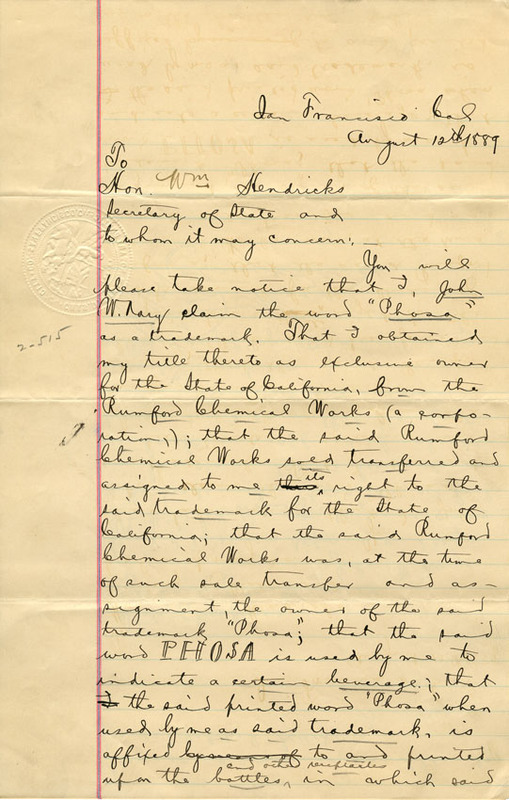 San Francisco Cal
August 12th 1889
To
Hon. Wm Hendricks
Secretary of State and
to whom it may concern:
You will
please take notice that I, John
W. Nary claim the word "Phosa"
as a trademark. That I obtained
my title thereto as exclusive owner
for the State of California, from the
Rumford Chemical Works (a corpo-
ration,); that the said Rumford
Chemical Works sold transferred and
assigned to me its right to the
said trademark for the State of
California; that the said Rumford
Chemical Works was, at the time
of such sale transfer and as-
signment, the owner of the said
trademark "Phosa"; that the said
word PHOSA is used by me to
indicate a certain beverage; that
the said printed word "Phosa" when
used by me as said trademark, is
affixed to and printed
and other receptacles
upon the bottles, in which said
2-515